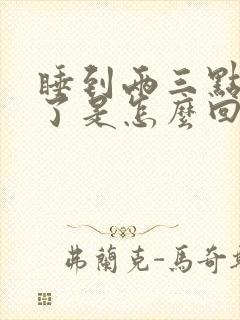 睡到兩三點
了是怎麼回
弗蘭克-馬奇